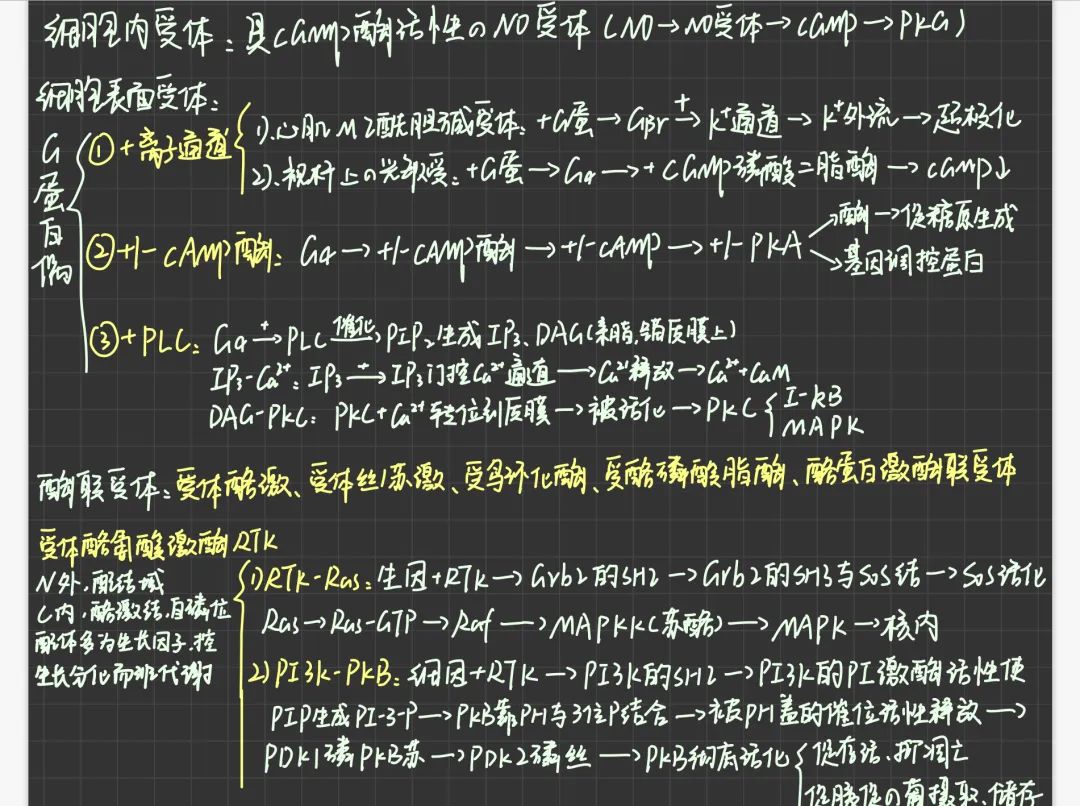 细胞内受体：具cGmp酶活性のNO受体（NO→NO受体→cGmp→PKG）
细胞表面受体：
G蛋白偶
①+离子通道
1).心肌M2酰胆碱受体：+G蛋→Gβr +→K⁺通道→K⁺外流→超极化
2).视杆上の光知受：+G蛋→Gα→+CGMP磷酸二脂酶→cGmp↓
②+/-cAmp酶：Gα→+/-cAMP酶→+/-cAMP→+/-PKA
→酶→促糖原生成
→基因调控蛋白
③+PLC：Gα +→PLC 催化→PIP₂生成IP₃、DAG(亲脂,锚质膜上)
IP₃-Ca²⁺：IP₃ +→IP₃门控Ca²⁺通道→Ca²⁺释放→Ca²⁺+CaM
DAG-PKC：PKC+Ca²⁺转位到质膜→被活化→PKC
I-kB
MAPK
酶联受体：受体酪激、受体丝/苏激、受鸟环化酶、受酪磷酸脂酶、酪蛋白激酶联受体
受体酪氨酸激酶RTK
N外,配结域
C内,酪激结,自磷位
配体多为生长因子.控
生长分化而非代谢
1)RTK-Ras：生因+RTK→Grb2的SH2→Grb2的SH3与SoS结→SoS活化
Ras→Ras-GTP→Raf→MAPKK(苏酪)→MAPK→核内
2)PI3K-PKB：细因+RTK→PI3K的SH2→PI3K的PI激酶活性使
PIP生成PI-3-P→PKB靠PH与3位P结合→被PH盖的催位活性释放→
PDK1磷PKB苏→PDK2磷丝→PKB彻底活化
促存活、抑凋亡
促胰促の葡摄取、储存